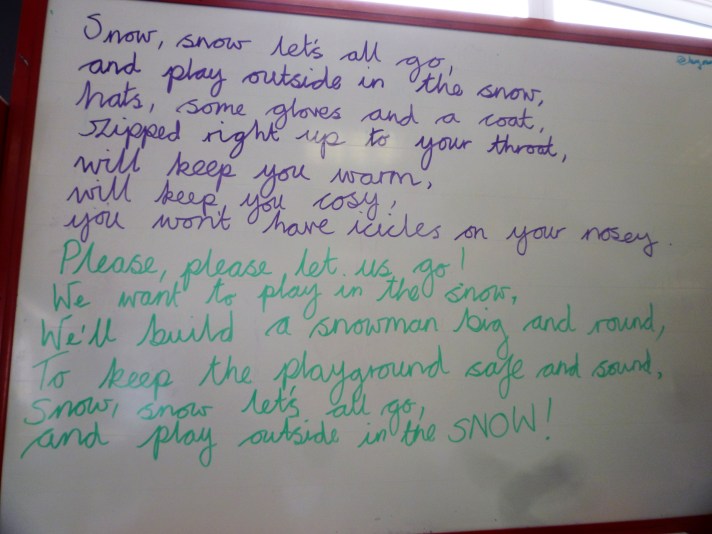 Snow, snow let's all go,
and play outside in the snow,
hats, some gloves and a coat,
zipped right up to your throat,
will keep you warm,
will keep you cosy,
you won't have icicles on your nosey.
Please, please let us go!
We want to play in the snow,
We'll build a snowman big and round,
To keep the playground safe and sound,
Snow, snow let's all go,
and play outside in the SNOW!